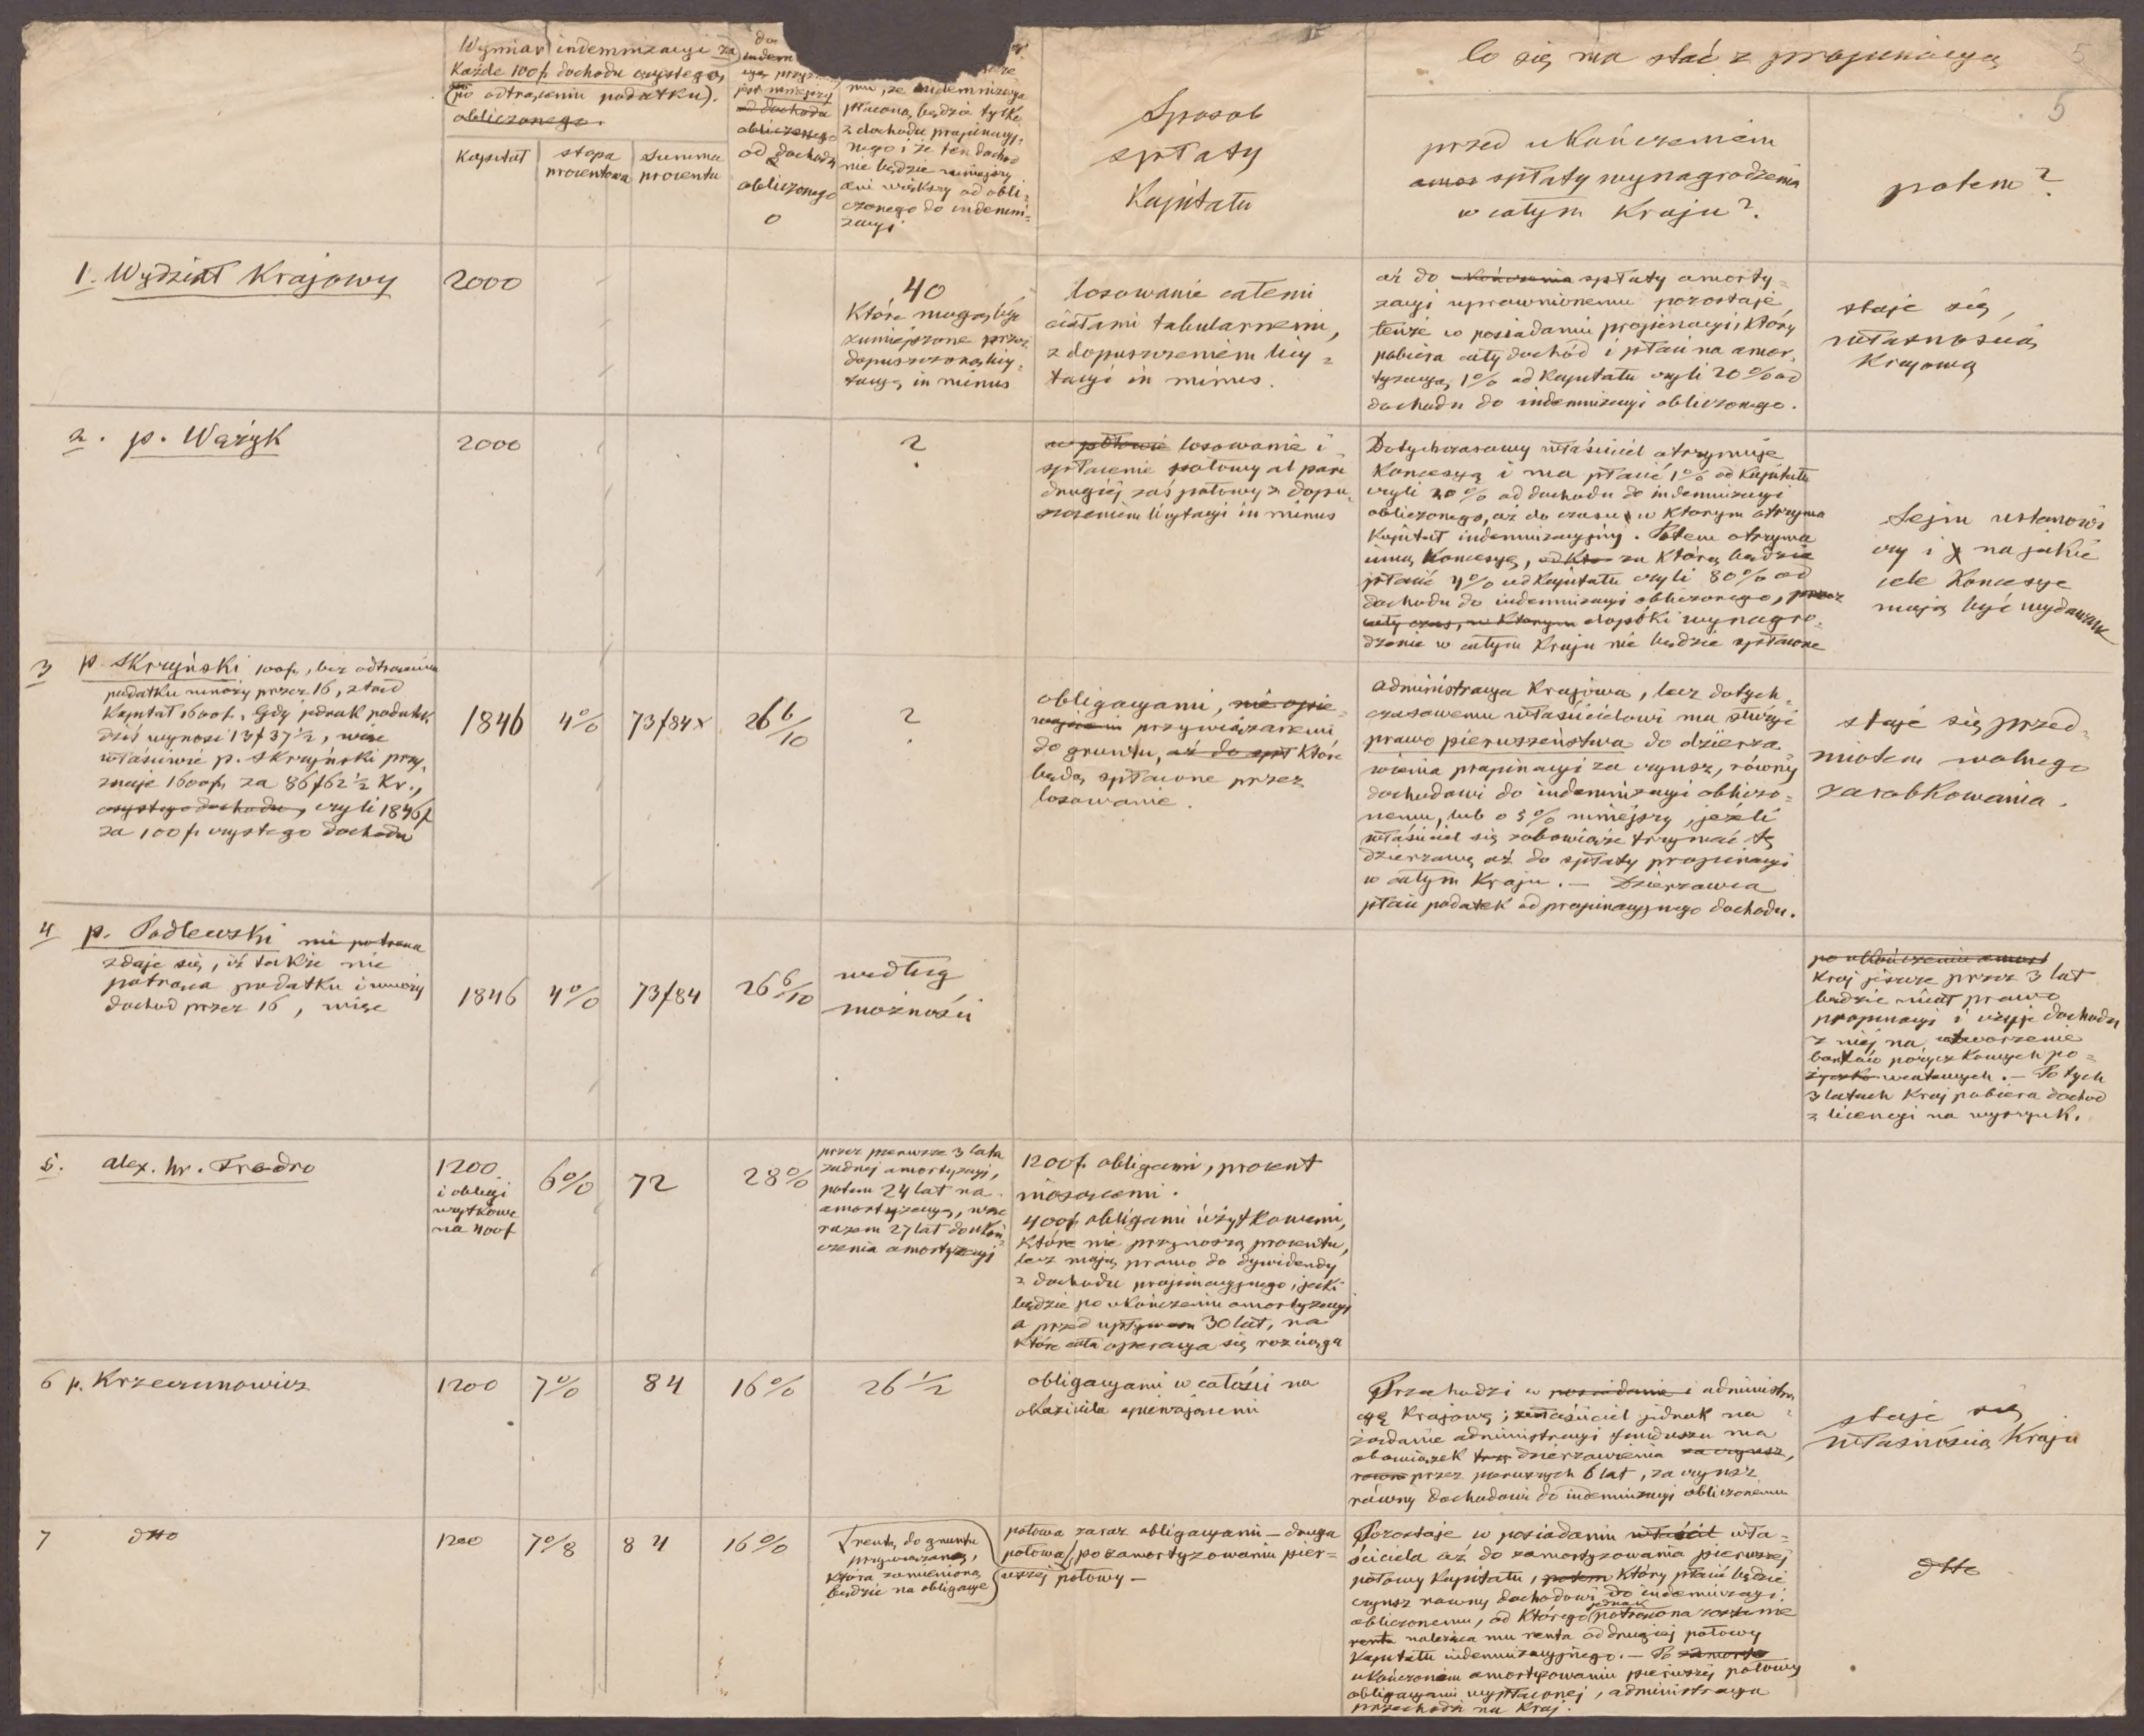 5
5
Wymiar indemnizacyi za
Każde 100 f. dochodu czystego,
(po odtrąceniu podatku).
obliczonego.
Kapitał
stopa
procentowa
summa
procentu
indem
jest mniejszy
od dochodu
obliczonego
od dochodu
obliczonego
0
że indemnizacya
płaconą będzie tylko
z dochodu propinacyj-
nego i że ten dochód
nie będzie mniejszy
ani większy od obli-
czonego do indemni-
zacyi
Sposob
spłaty
Kapitału
Co się ma stać z propinacyą
przed ukończeniem
amor spłaty wynagrodzenia
w całym Kraju?
potem?
1. Wydział Krajowy
2000
40
Które mogą być
zmniejszone przez
dopuszczoną licy-
tacyą in minus
losowanie całemi
ciałami tabularnemi,
z dopuszczeniem licy-
tacyi in minus.
aż do ukończenia spłaty amorty-
zacyi uprawnionemu pozostaje
tenże w posiadaniu propinacyi, który
pobiera cały dochód i płaci na amor-
tyzacyą 1% od Kapitału czyli 20% od
dochodu do indemnizacyi obliczonego.
staje się
własnością
Krajową
2. p. Wężyk
2000
?
w połowie losowanie i
spłacenie połowy al pari
drugiéj zaś połowy z dopu-
szczeniem licytacyi in minus
Dotychczasowy właściciel otrzymuje
Koncesyą i ma płacić 1% od Kapitału
czyli 20% od dochodu do indemnizacyi
obliczonego, aż do czasu w którym otrzyma
Kapitał indemnizacyjny. Potem otrzyma
inną Koncesyę, za którą będzie
płacić 4% od Kapitału czyli 80% od
dochodu do indemnizacyi obliczonego, przez
cały czas, w którym dopóki wynagro-
dzenie w całym Kraju nie będzie spłacone
Sejm ustanowi
czy i na jakie
cele Koncesye
mają być wydawane
3 p. Skrzyński 100 f., bez odtrącenia
podatku mnoży przez 16, ztąd
Kapitał 1600 f. Gdy jednak podatek
dziś wynosi 13 f 37 ½, więc
właściwie p. Skrzyński przy-
znaje 1600 f. za 86 f 62 ½ Kr.,
czystego dochodu, czyli 1846 f
za 100 f. czystego dochodu
1846
4%
73 f 84 x
26 6/10
?
obligacyami,
przywiązanemi
do gruntu, aż do spł które
będą spłacone przez
losowanie.
administracya Krajowa, lecz dotych-
czasowemu właścicielowi ma służyć
prawo pierwszeństwa do dzierża-
wienia propinacyi za czynsz, równy
dochodowi do indemnizacyi obliczo-
nemu, lub o 5% mniejszy, jeżeli
właściciel się zobowiąże trzymać tę
dzierżawę aż do spłaty propinacyi
w całym Kraju. — Dzierżawca
płaci podatek od propinacyjnego dochodu.
staje się przed-
miotem wolnego
zarobkowania.
4 p. Podlewski nie potrąca
zdaje się, iż także nie
potrąca podatku i mnoży
dochód przez 16, więc
1846
4%
73 f 84
26 6/10
według
możności
po ukończeniu amort
Kraj jeszcze przez 3 lat
będzie miał prawo
propinacyi i użyje dochodu
z niej na utworzenie
banków pożyczkowych po-
wiatowych. — Po tych
3 latach Kraj pobiera dochód
z licencyi na wyszynk.
5. alex. hr. Fredro
1200
i obligi
użytkowe
na 400 f
6%
72
28%
przez pierwsze 3 lata
żadnej amortyzacyi,
potem 24 lat na
amortyzacyą, więc
razem 27 lat do ukoń-
czenia amortyzacyi
1200 f. obligami, procent
niosącemi.
400 f. obligami użytkowemi,
które nie przynoszą procentu,
lecz mają prawo do dywidendy
z dochodu propinacyjnego, jaki
będzie po ukończeniu amortyzacyi
a przed upływem 30 lat, na
które cała operacya się rozciąga
6 p. Krzeczunowicz
1200
7%
84
16%
26 ½
obligacyami w całości na
okaziciela opiewającemi
Przechodzi w posiadanie i administra-
cyę Krajową; właściciel jednak na
żądanie administracyi funduszu ma
obowiązek dzierżawienia za czynsz,
równ przez pierwszych 6 lat, za czynsz
równy dochodowi do indemnizacyi obliczonemu
staje się
własnością Kraju
7 dtto
1200
7%
84
16%
rentą do gruntu
przywiązaną,
która zamienioną
będzie na obligacye
połowa zaraz obligacyami — druga
połowa po zamortyzowaniu pier-
wszej połowy —
Pozostaje w posiadaniu właścil wła-
ściciela aż do zamortyzowania pierwszej
połowy Kapitału, potem który płacić będzie
czynsz równy dochodowi do indemnizacyi
obliczonemu, od którego jednak potrąconą zostanie
renta należąca mu renta od drugiej połowy
Kapitału indemnizacyjnego. — Po zamorty
ukończoném amortyzowaniu pierwszej połowy
obligacyami wypłaconej, administracya
przechodzi na Kraj.
dtto